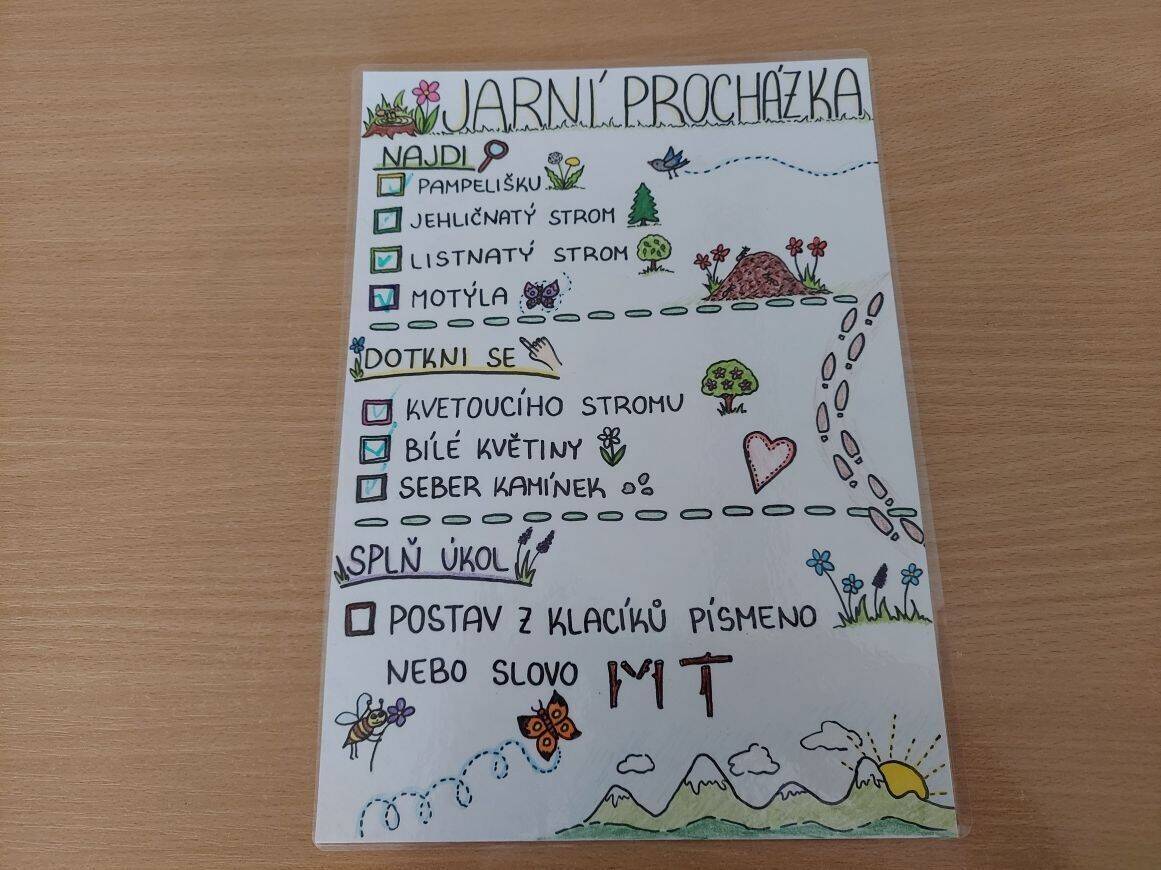 JARNÍ PROCHÁZKA
NAJDI
PAMPELIŠKU
JEHLIČNATÝ STROM
LISTNATÝ STROM
MOTÝLA
DOTKNI SE
KVETOUCÍHO STROMU
BÍLÉ KVĚTINY
SEBER KAMÍNEK
SPLŇ ÚKOL
POSTAV Z KLACÍKŮ PÍSMENO
NEBO SLOVO M T